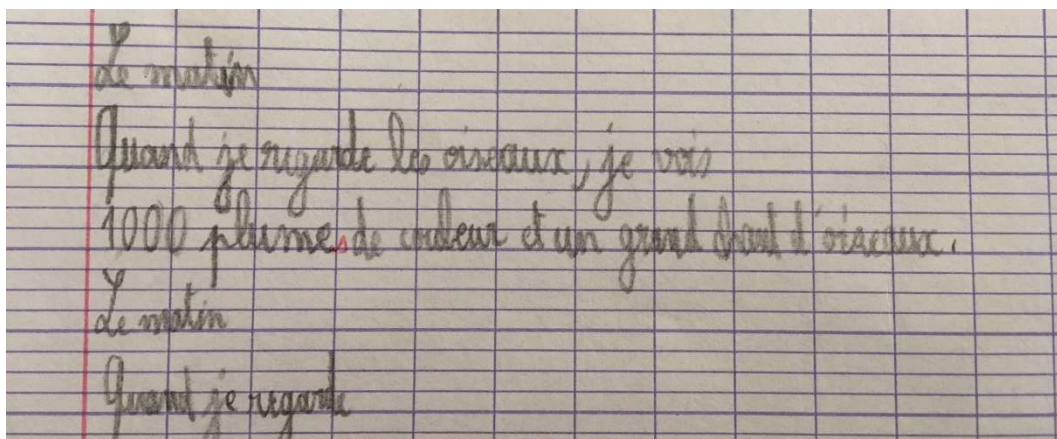 Le matin
Quand je regarde les oiseaux, je vois
1000 plumes de couleur et un grand chant d'oiseaux.
Le matin
Quand je regarde